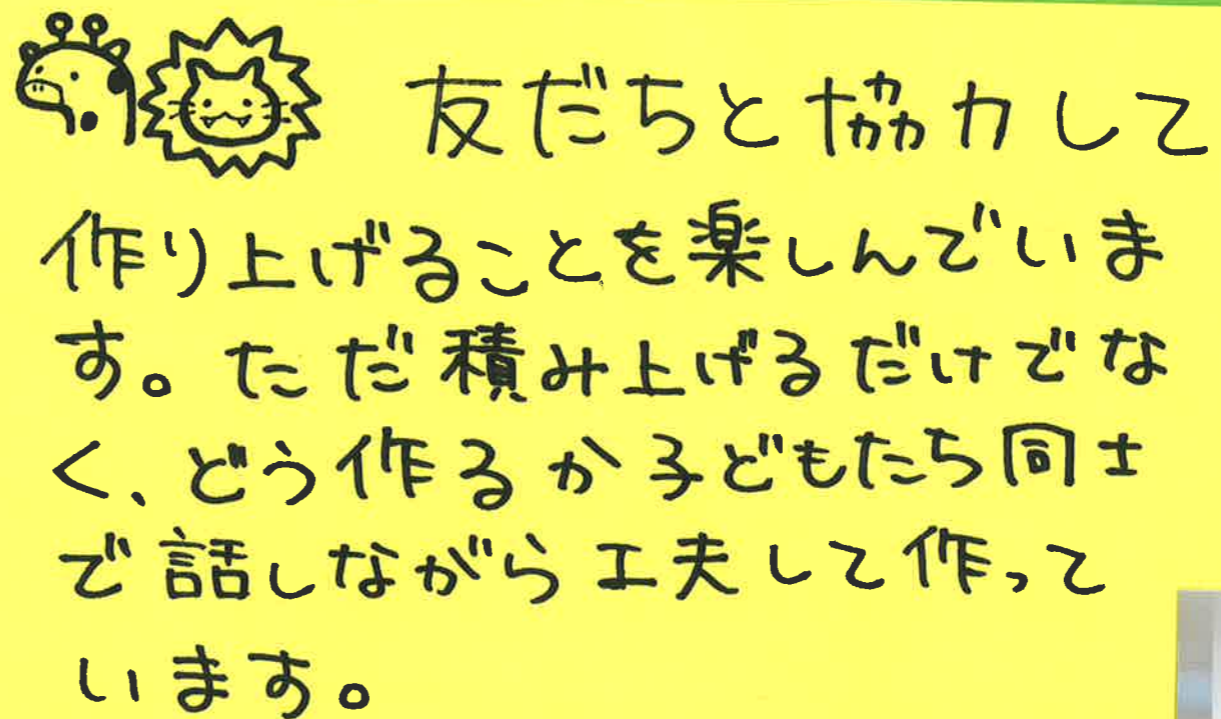 友だちと協力して
作り上げることを楽しんでいま
す。ただ積み上げるだけでな
く、どう作るか子どもたち同士
で話しながら工夫して作って
います。